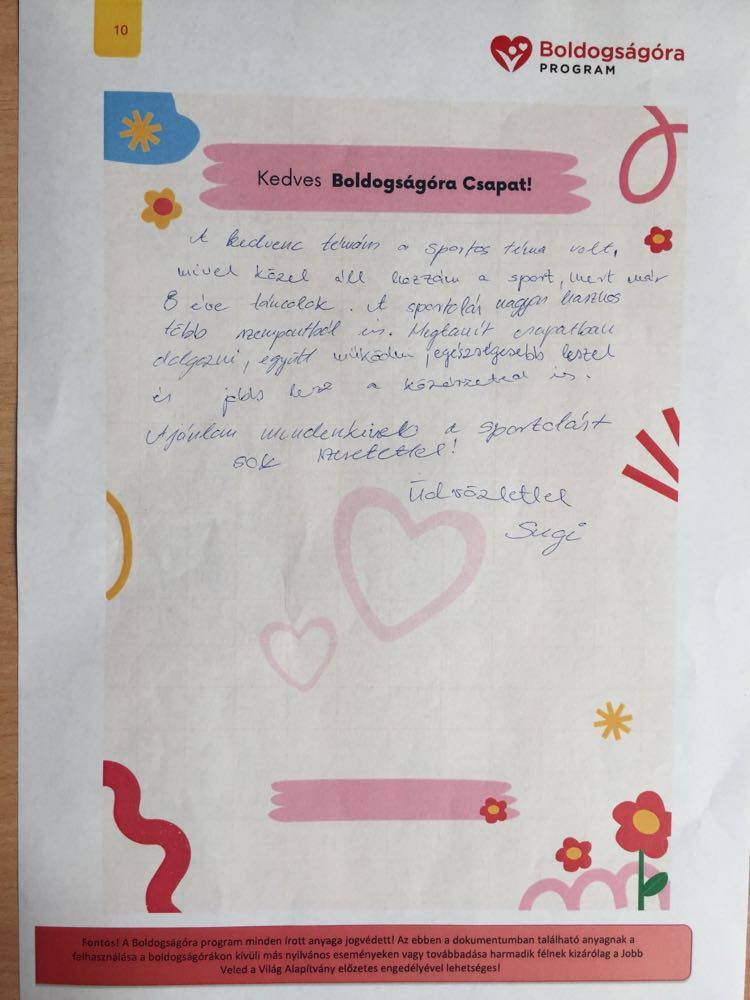 10
Boldogságóra
PROGRAM
Kedves Boldogságóra Csapat!
A kedvenc témám a sportos téma volt,
mivel közel áll hozzám a sport, mert már
8 éve táncolok. A sportolás nagyon hasznos
több szempontból is. Megtanít csapatban
dolgozni, együtt működni, egészségesebb leszel
és jobb lesz a közérzeted is.
Ajánlom mindenkinek a sportolást
sok szeretettel!
Üdvözlettel
Sugi
Fontos! A Boldogságóra program minden írott anyaga jogvédett! Az ebben a dokumentumban található anyagnak a
felhasználása a boldogságórákon kívüli más nyilvános eseményeken vagy továbbadása harmadik félnek kizárólag a Jobb
Veled a Világ Alapítvány előzetes engedélyével lehetséges!